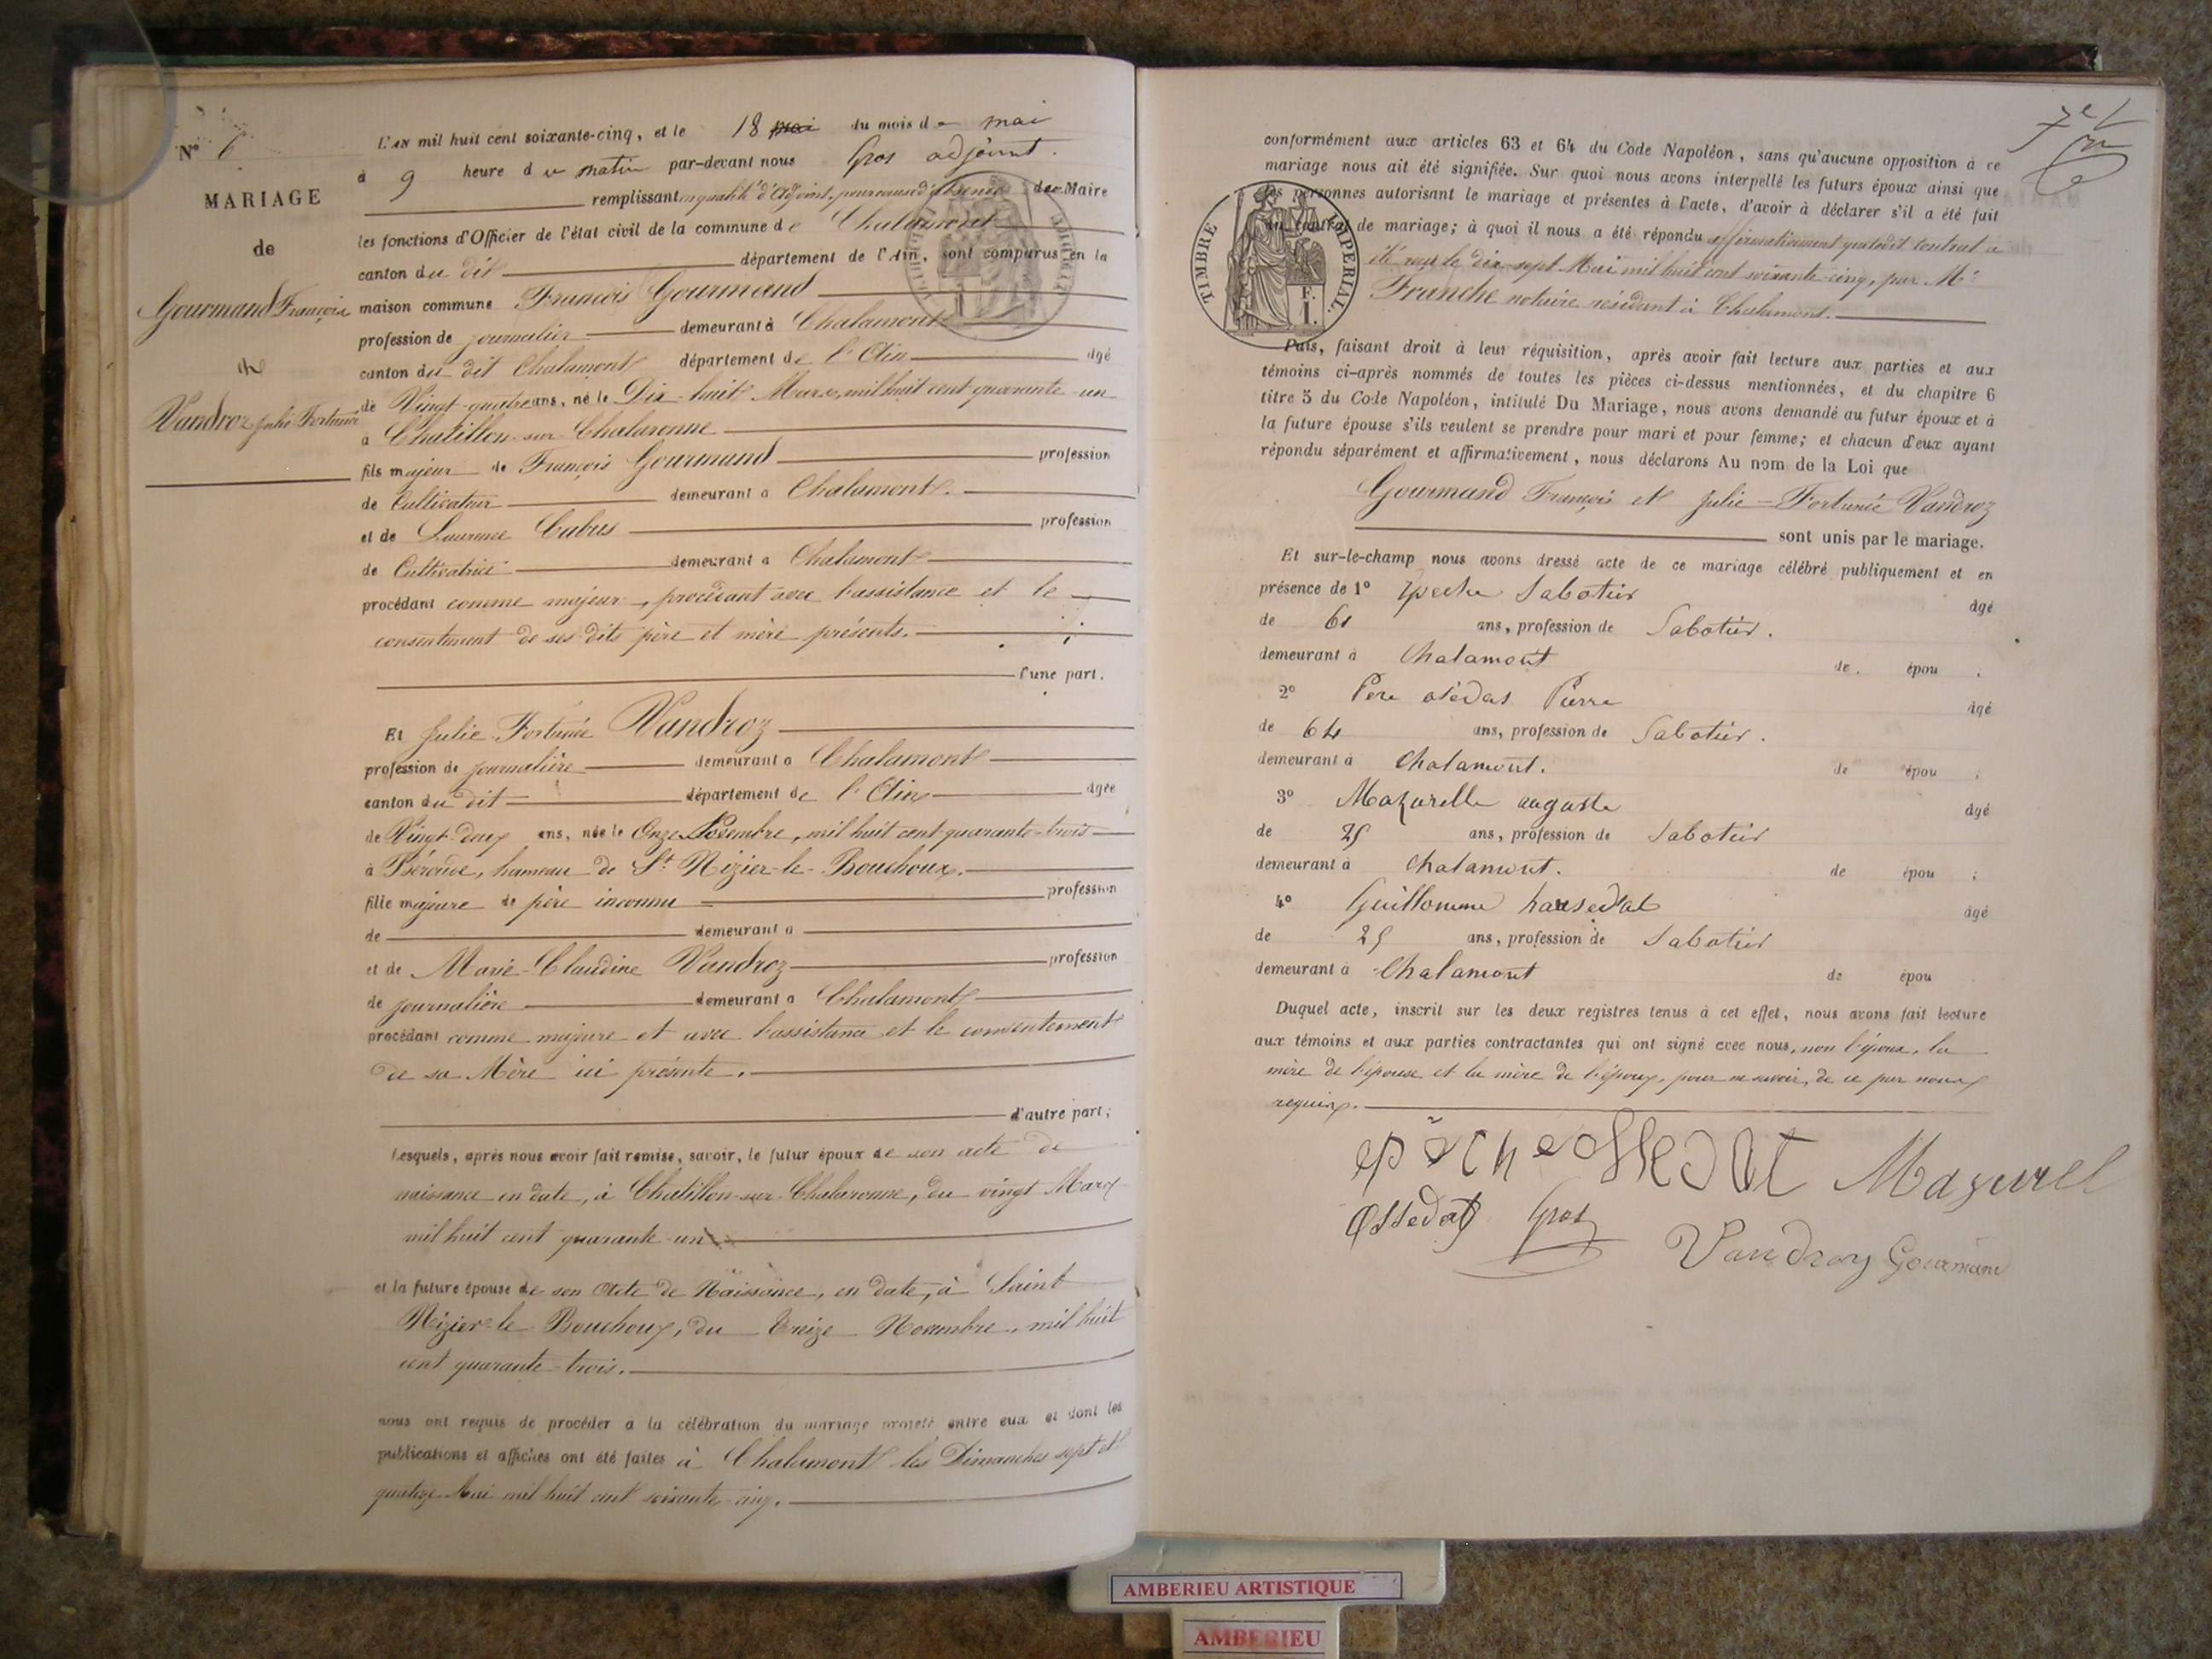 N° 6
MARIAGE
de
Gourmand François
et
Vandroz Julie Fortunée
L'AN mil huit cent soixante-cinq, et le 18 mai du mois de mai
à 9 heure du matin par-devant nous Gros adjoint.
remplissant en qualité d'adjoint, pour cause d'absence du Maire
les fonctions d'Officier de l'état civil de la commune de Chalamont
canton du dit département de l'Ain, sont comparus en la
maison commune François Gourmand
profession de journalier demeurant à Chalamont
canton du dit Chalamont département de l'Ain âgé
de Vingt-quatre ans, né le Dix-huit Mars, mil huit cent quarante-un
à Chatillon-sur-Chalaronne
fils majeur de François Gourmand profession
de Cultivateur demeurant à Chalamont.
et de Laurence Cabus profession
de Cultivatrice demeurant à Chalamont
procédant comme majeur, procédant avec l'assistance et le
consentement de ses dits père et mère présents.
d'une part.
Et Julie Fortunée Vandroz
profession de journalière demeurant à Chalamont
canton du dit département de l'Ain âgée
de Vingt-deux ans, née le Onze Novembre, mil huit cent quarante-trois
à Béroude, hameau de St Nizier-le-Bouchoux.
fille majeure de père inconnu profession
de demeurant à
et de Marie-Claudine Vandroz profession
de journalière demeurant à Chalamont
procédant comme majeure et avec l'assistance et le consentement
de sa Mère ici présente.
d'autre part;
Lesquels, après nous avoir fait remise, savoir, le futur époux de son acte de
naissance en date, à Chatillon-sur-Chalaronne, du vingt Mars
mil huit cent quarante-un
et la future épouse de son Acte de Naissance, en date, à Saint
Nizier-le Bouchoux, du treize Novembre, mil huit
cent quarante-trois.
nous ont requis de procéder à la célébration du mariage projeté entre eux et dont les
publications et affiches ont été faites à Chalamont les Dimanches sept et
quatorze Mai mil huit cent soixante-cinq.
conformément aux articles 63 et 64 du Code Napoléon, sans qu'aucune opposition à ce
mariage nous ait été signifiée. Sur quoi nous avons interpellé les futurs époux ainsi que
les personnes autorisant le mariage et présentes à l'acte, d'avoir à déclarer s'il a été fait
un contrat de mariage; à quoi il nous a été répondu affirmativement que ledit contrat a
été reçu le dix-sept Mai mil huit cent soixante-cinq, par Me
Franche notaire résidant à Chalamont.
TIMBRE IMPERIAL.
F.
1.
Puis, faisant droit à leur réquisition, après avoir fait lecture aux parties et aux
témoins ci-après nommés de toutes les pièces ci-dessus mentionnées, et du chapitre 6
titre 5 du Code Napoléon, intitulé Du Mariage, nous avons demandé au futur époux et à
la future épouse s'ils veulent se prendre pour mari et pour femme; et chacun d'eux ayant
répondu séparément et affirmativement, nous déclarons Au nom de la Loi que
Gourmand François et Julie-Fortunée Vandroz
sont unis par le mariage.
Et sur-le-champ nous avons dressé acte de ce mariage célébré publiquement et en
présence de 1° Sabotier âgé
de ans, profession de Sabotier.
demeurant à Chalamont de. épou .
2° Pierre âgé
de 64 ans, profession de Sabotier.
demeurant à Chalamont. de épou ,
3° Mazurelle auguste âgé
de 25 ans, profession de Sabotier
demeurant à Chalamont. de épou ;
4° âgé
de 25 ans, profession de Sabotier
demeurant à Chalamont de épou
Duquel acte, inscrit sur les deux registres tenus à cet effet, nous avons fait lecture
aux témoins et aux parties contractantes qui ont signé avec nous, non l'époux, la
mère de l'épouse et la mère de l'époux, pour ne savoir, de ce par nous
requis.
Mazurel
Ossedat Gros
Vandroz Gourmand
AMBERIEU ARTISTIQUE
AMBERIEU